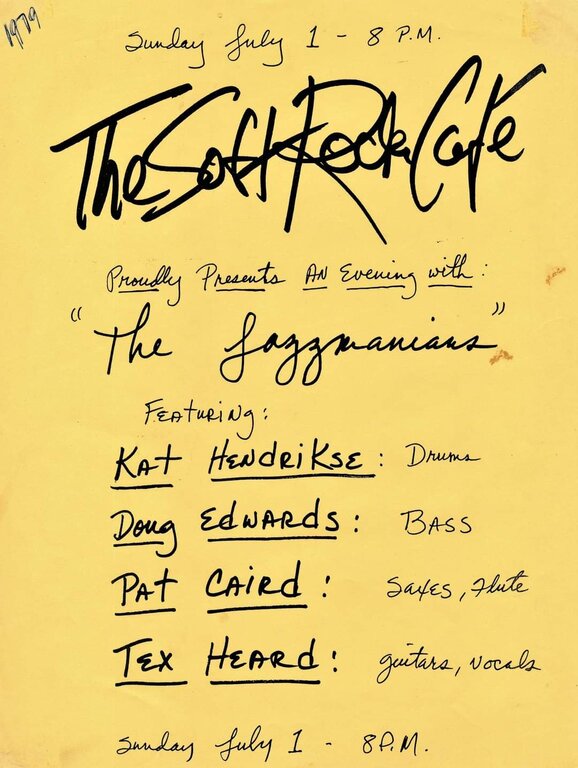 1979
Sunday July 1 - 8 P.M.
The Soft Rock Cafe
Proudly Presents An Evening with:
"The Jazzmanians"
Featuring:
Kat Hendrikse: Drums
Doug Edwards: Bass
Pat Caird: Saxes, Flute
Tex Heard: guitars, vocals
Sunday July 1 - 8 P.M.